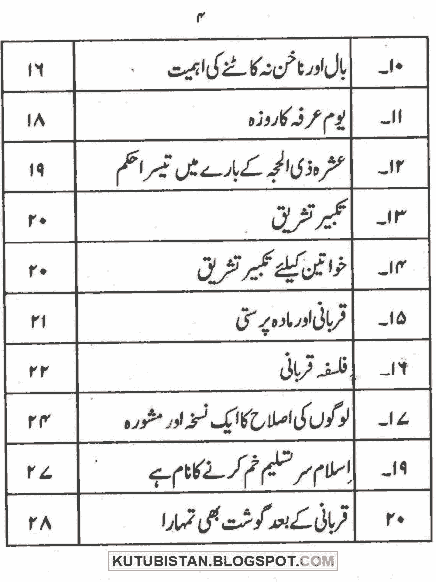 ۴
۱۰۔ بال اور ناخن نہ کاٹنے کی اہمیت ۱۶
۱۱۔ یوم عرفہ کا روزہ ۱۸
۱۲۔ عشرہ ذی الحجہ کے بارے میں تیسرا حکم ۱۹
۱۳۔ تکبیر تشریق ۲۰
۱۴۔ خواتین کیلئے تکبیر تشریق ۲۰
۱۵۔ قربانی اور مادہ پرستی ۲۱
۱۶۔ فلسفہ قربانی ۲۲
۱۷۔ لوگوں کی اصلاح کا ایک نسخہ اور مشورہ ۲۴
۱۹۔ اِسلام سر تسلیم خم کرنے کا نام ہے ۲۷
۲۰ قربانی کے بعد گوشت بھی تمہارا ۲۸
KUTUBISTAN.BLOGSPOT.COM